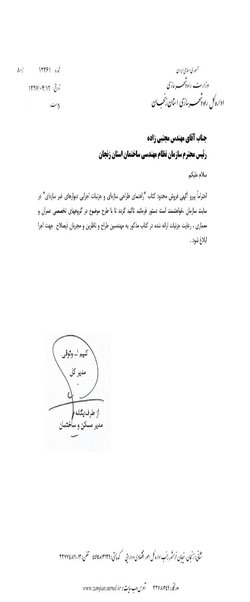 جمهوری اسلامی ایران
وزارت راه و شهرسازی
اداره کل راه و شهرسازی استان زنجان
شماره: ۱۳۳۶۱ /۸۰
تاریخ: ۱۳۹۷/۰۴/۱۲
پیوست:
جناب آقای مهندس مجتبی زاده
رئیس محترم سازمان نظام مهندسی ساختمان استان زنجان
سلام علیکم
احتراماً پیرو آگهی فروش محدود کتاب "راهنمای طراحی سازه‌ای و جزئیات اجرایی دیوارهای غیر سازه‌ای" در
سایت سازمان ،خواهشمند است دستور فرمائید تاکید گردد تا با طرح موضوع در گروههای تخصصی عمران و
معماری ، رعایت جزئیات ارائه شده در کتاب مذکور به مهندسین طراح و ناظرین و مجریان ذیصلاح جهت اجرا
ابلاغ شود .
مدیر کل
از طرف
مدیر مسکن و ساختمان
نشانی: زنجان،
www.zanjan.mrud.ir